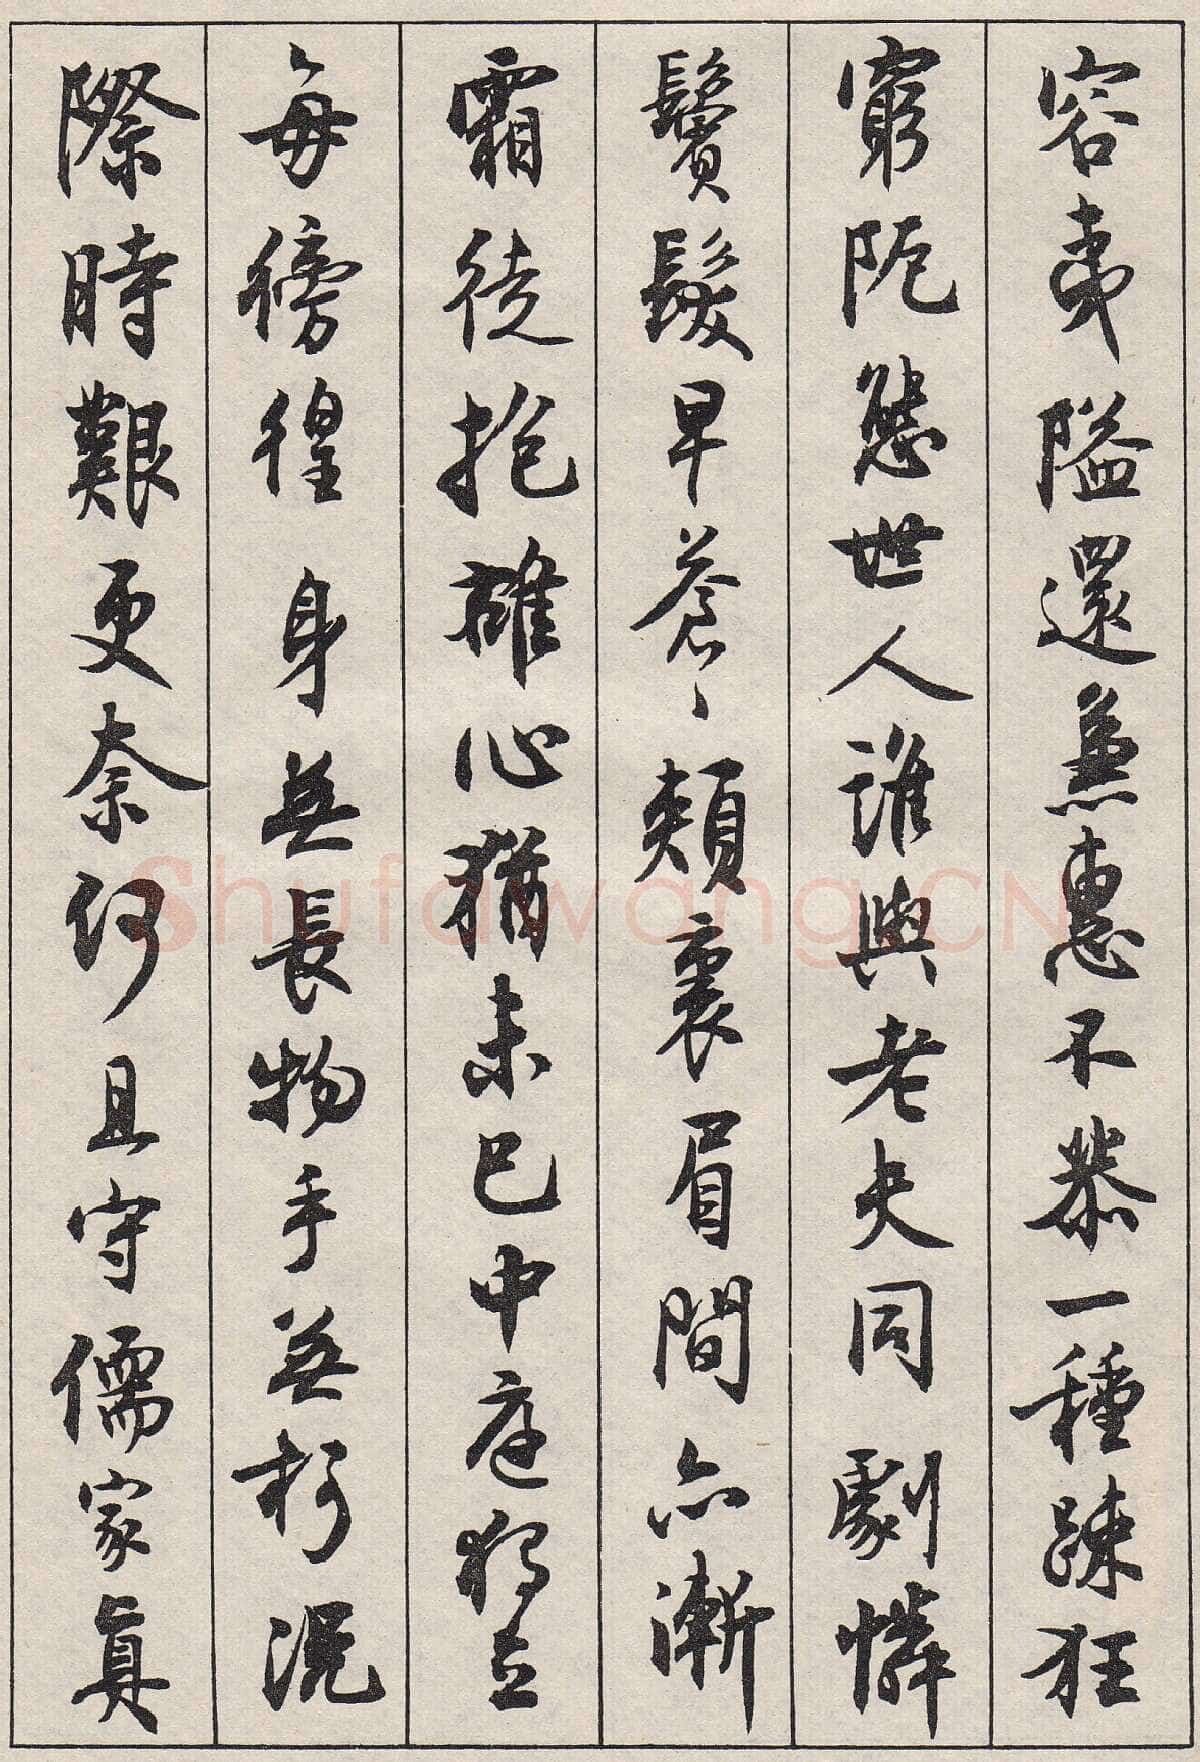 容夷隘還兼惠不恭一種踈狂
窮阨愁世人誰與老夫同劇憐
鬢髮早蒼〻頰裏眉間亦漸
霜徒抱雄心猶未已中庭獨立
每徬徨身無長物手無柯況
際時艱更奈何且守儒家真
Shufawang.CN